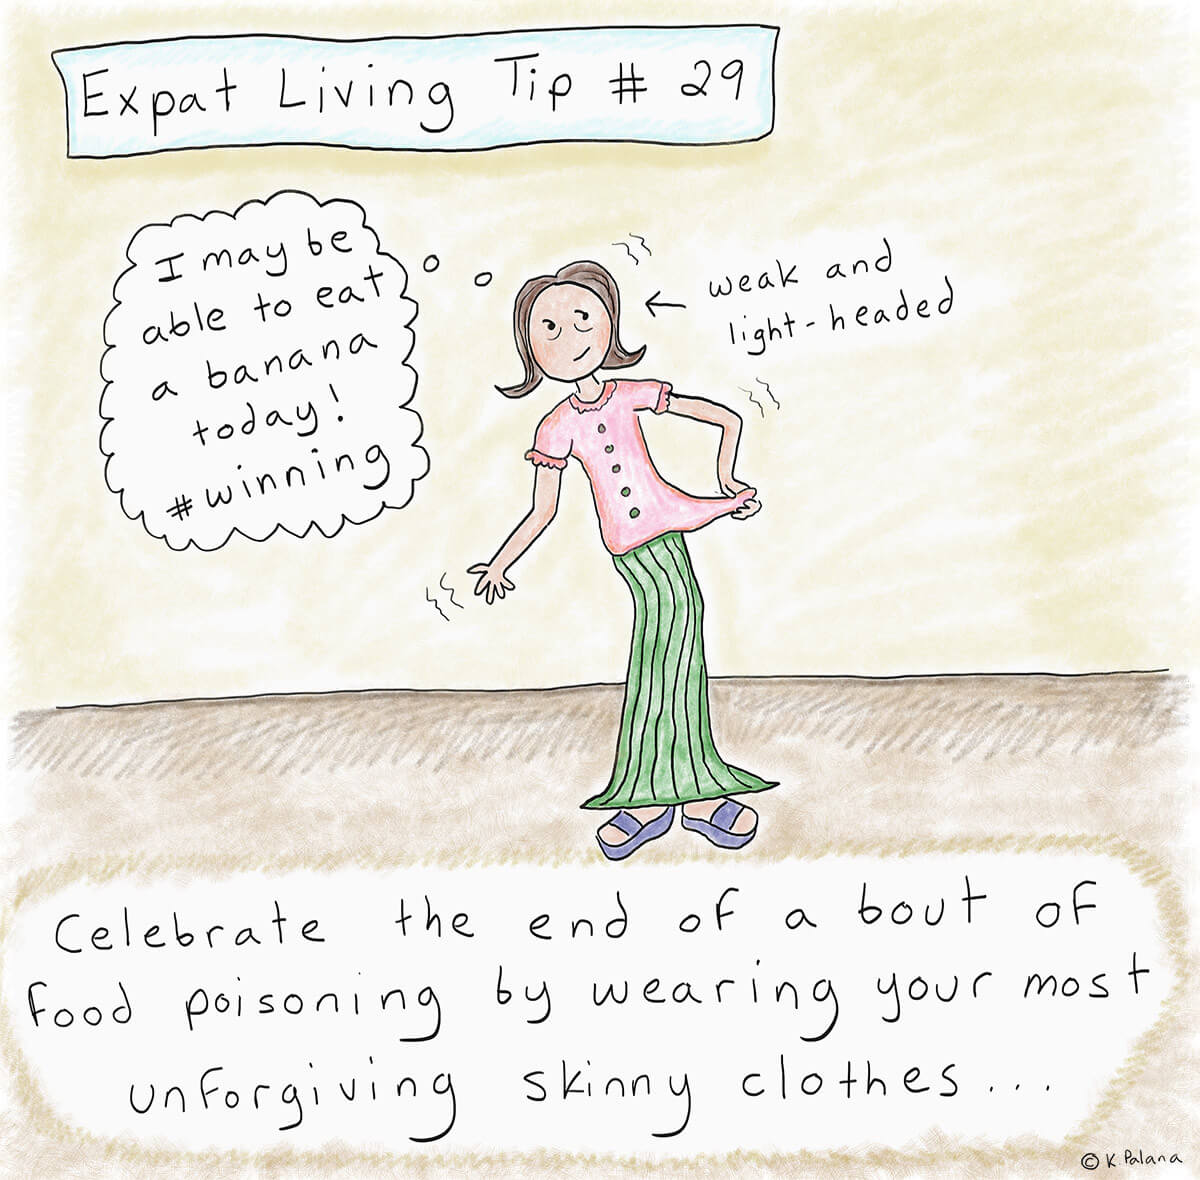 Expat Living Tip # 29
I may be
able to eat
a banana
today!
#winning
weak and
light-headed
Celebrate the end of a bout of
food poisoning by wearing your most
unforgiving skinny clothes...
© K. Palana